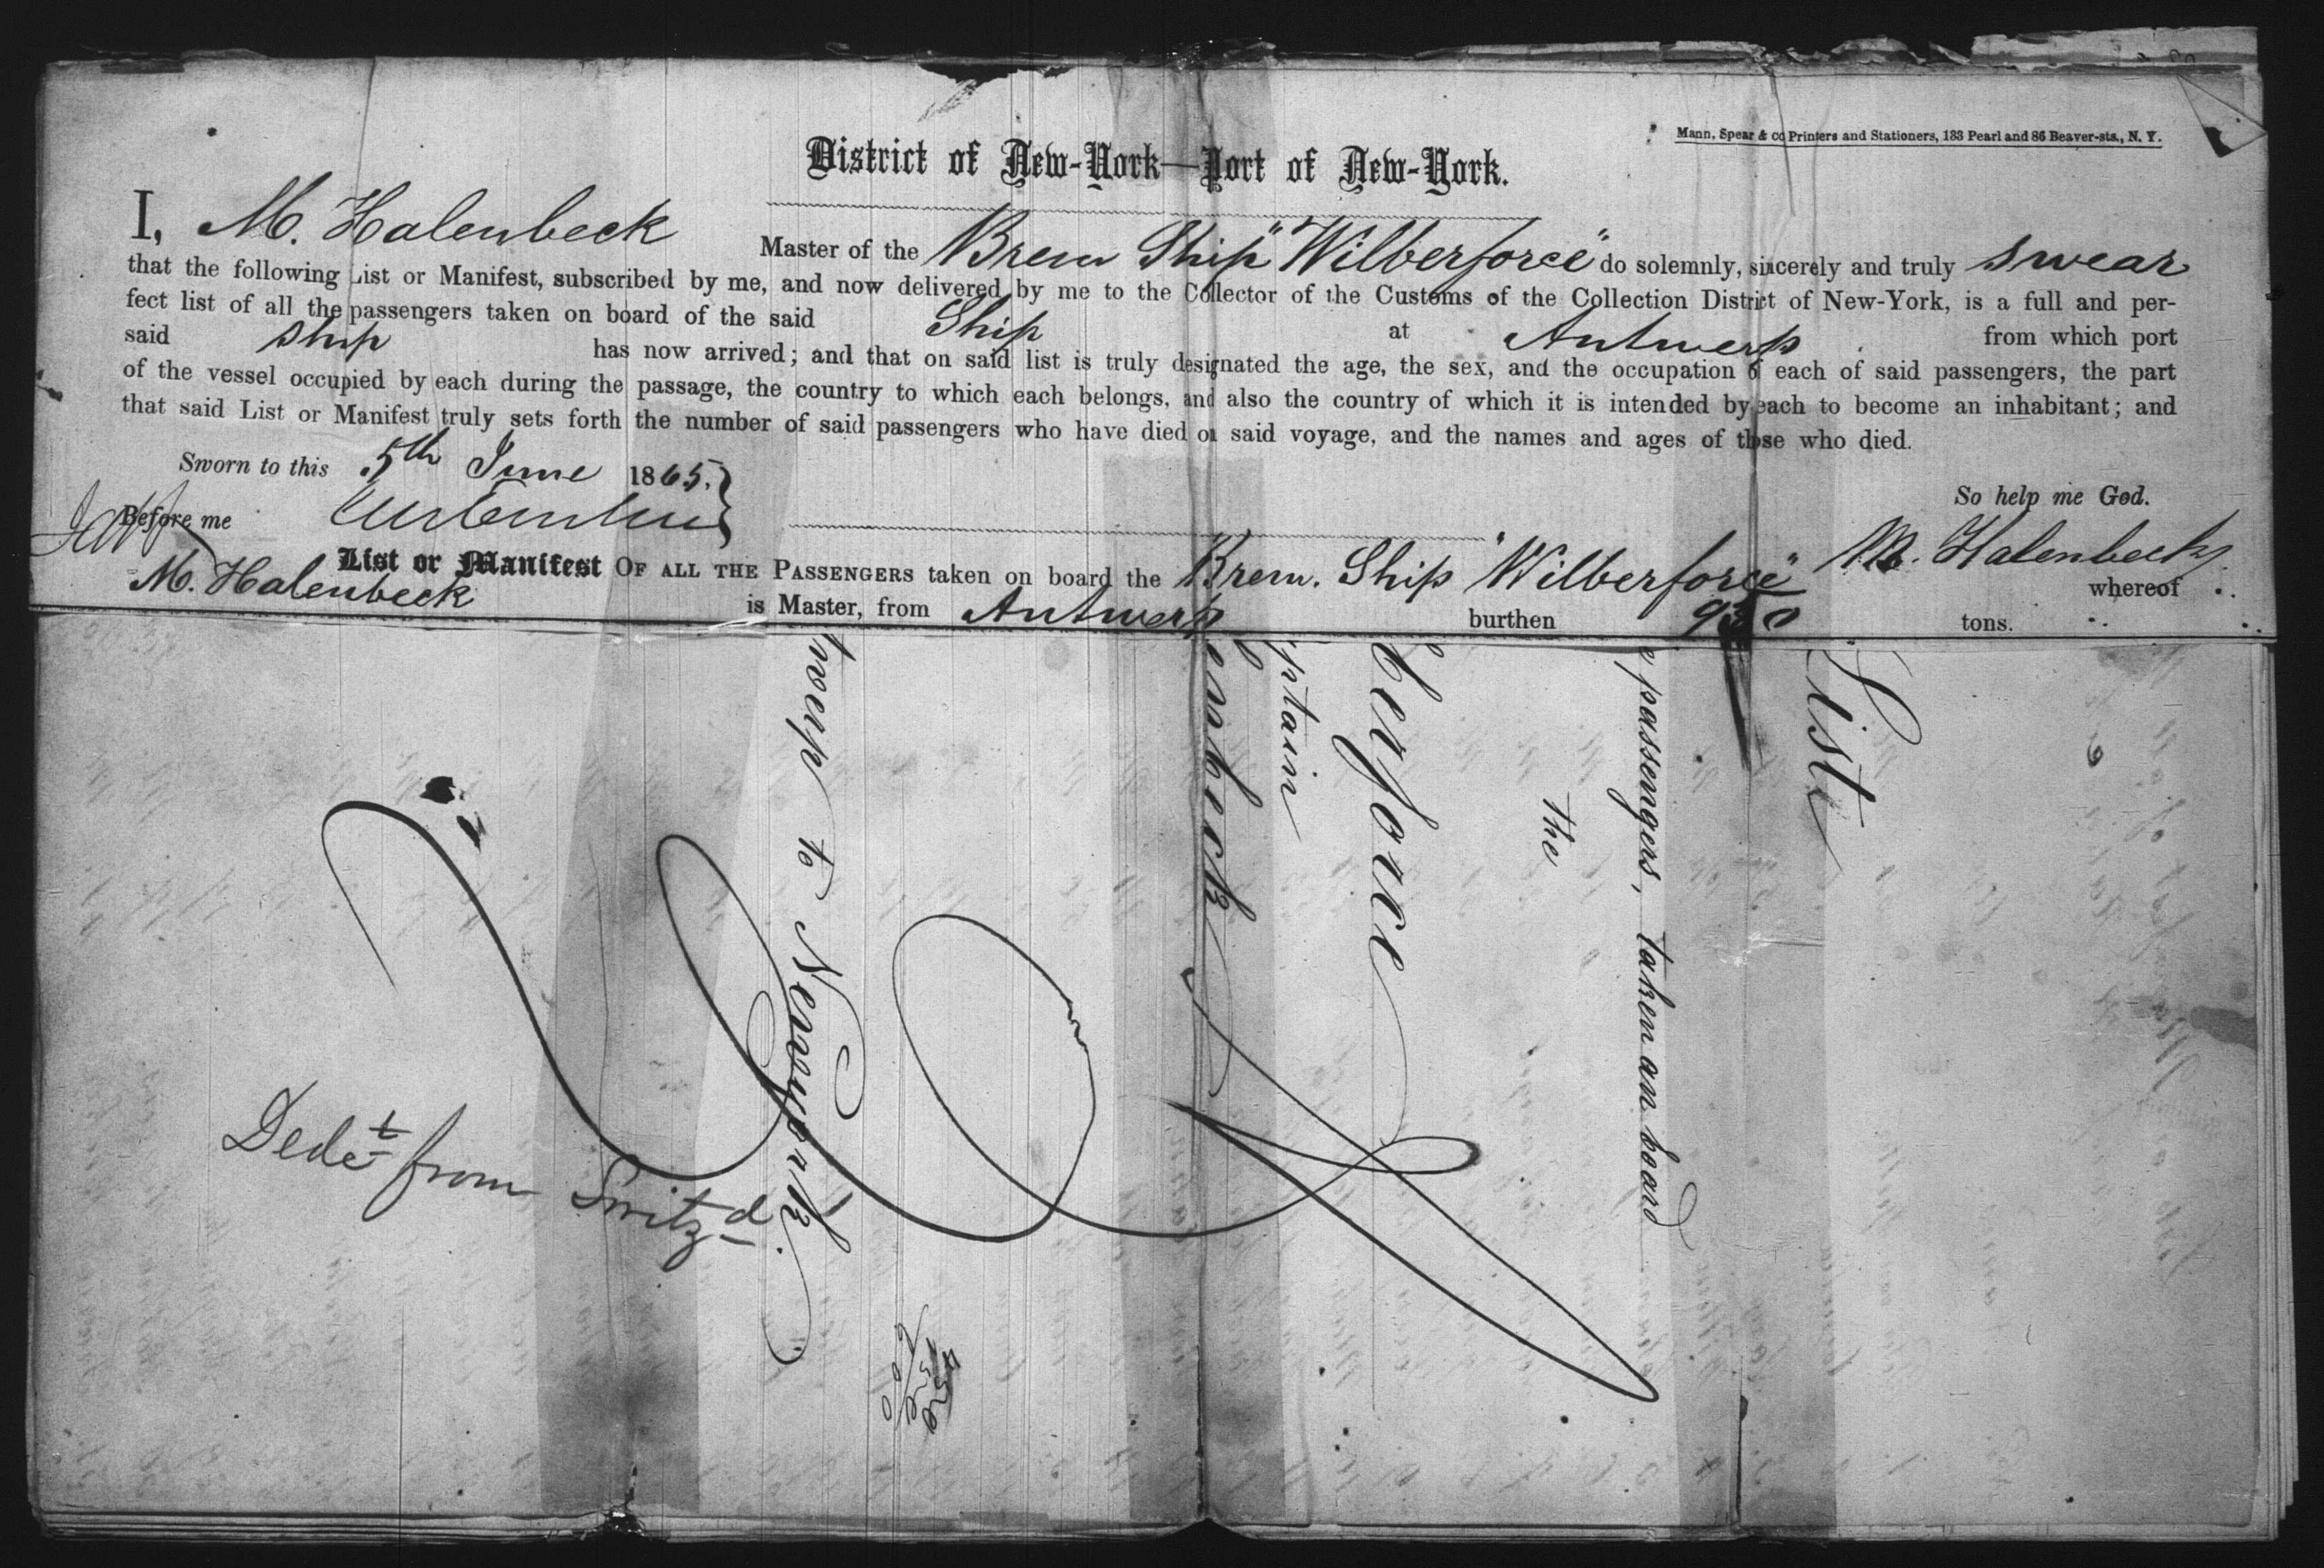 Mann, Spear & Co Printers and Stationers, 133 Pearl and 86 Beaver-sts., N. Y.
District of New-York—Port of New-York.
I, M. Halenbeck Master of the Brem Ship "Wilberforce" do solemnly, sincerely and truly swear
that the following List or Manifest, subscribed by me, and now delivered by me to the Collector of the Customs of the Collection District of New-York, is a full and per-
fect list of all the passengers taken on board of the said Ship at Antwerp from which port
said ship has now arrived; and that on said list is truly designated the age, the sex, and the occupation of each of said passengers, the part
of the vessel occupied by each during the passage, the country to which each belongs, and also the country of which it is intended by each to become an inhabitant; and
that said List or Manifest truly sets forth the number of said passengers who have died on said voyage, and the names and ages of those who died.
Sworn to this 5th June 1865.
So help me God.
Before me
M. Halenbeck
List or Manifest OF ALL THE PASSENGERS taken on board the Brem. Ship "Wilberforce" whereof
M. Halenbeck is Master, from Antwerp burthen 930 tons.
List
e passengers, taken an board
the
berforce
ptain
enbeck
twerp to Newyork.
Dedct from Switzd